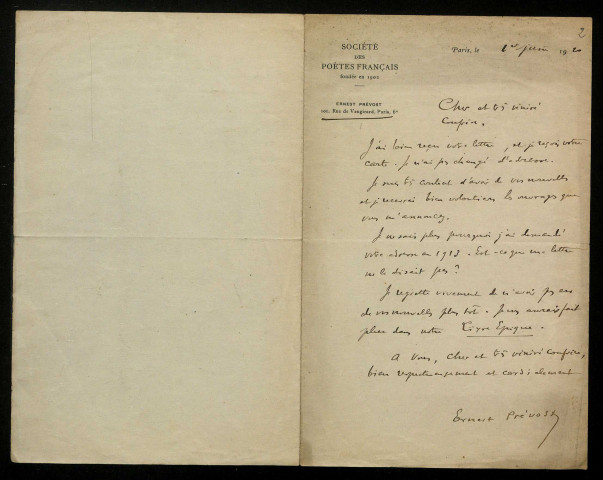 2
SOCIÉTÉ
DES
POÈTES FRANÇAIS
fondée en 1902
Paris, le 1er juin 1920
ERNEST PRÉVOST
Rue de Vaugirard, Paris, 6e
Cher et très vénéré
Confrère,
J'ai bien reçu votre lettre, et je reçois votre
carte. Je n'ai pas changé d'adresse.
Je suis très content d'avoir de vos nouvelles
et je recevrai bien volontiers les ouvrages que
vous m'annoncez.
Je ne sais plus pourquoi j'ai demandé
votre adresse en 1913. Est-ce que ma lettre
ne le disait pas ?
Je regrette vivement de n'avoir pas eu
de vos nouvelles plus tôt. Je vous aurais fait
place dans notre Livre Epique.
A vous, cher et très vénéré confrère,
bien respectueusement et cordialement
Ernest Prévost